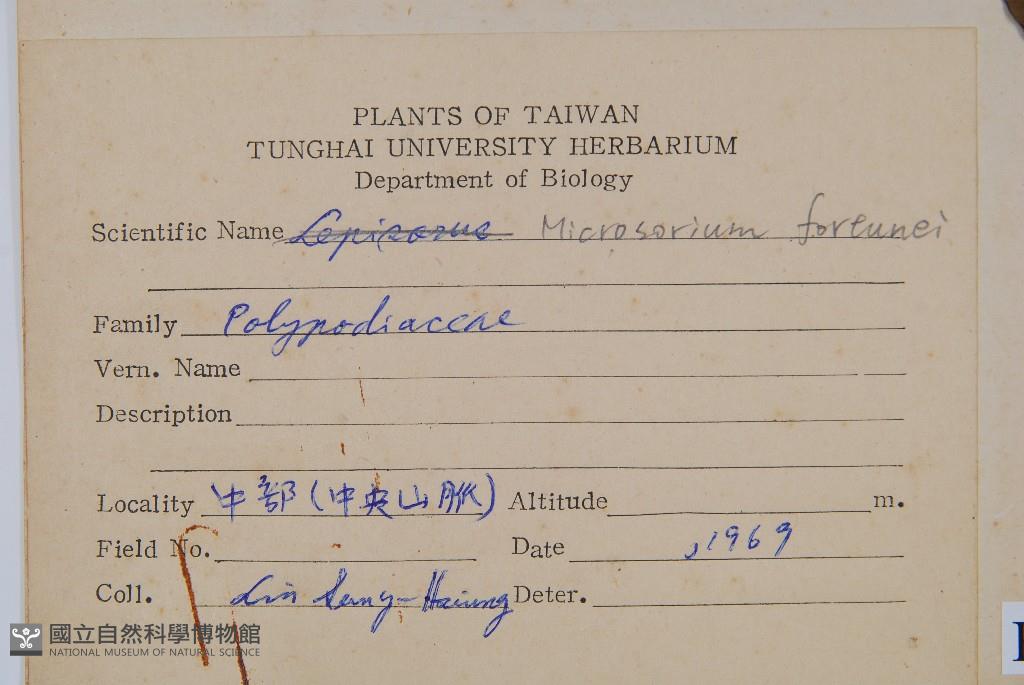 PLANTS OF TAIWAN
TUNGHAI UNIVERSITY HERBARIUM
Department of Biology
Scientific Name Lepisorus Microsorium fortunei
Family Polypodiaceae
Vern. Name
Description
Locality 中部(中央山脈) Altitude m.
Field No. Date ,1969
Coll. Lin Sang-Hsiung Deter.
國立自然科學博物館
NATIONAL MUSEUM OF NATURAL SCIENCE